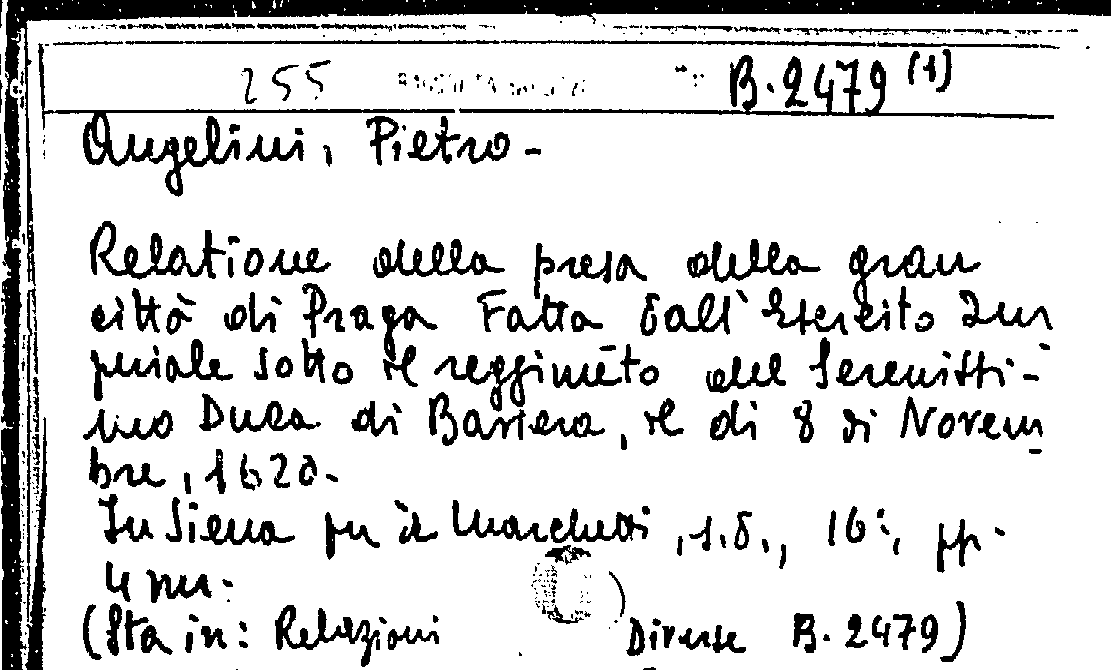 255 B. 2479 (1)
Angelini, Pietro -
Relatione della presa della gran
città di Praga Fatta dall'Esercito Im
periale sotto il reggimēto del Serenissi-
mo Duca di Baviera, il di 8 di Novem
bre, 1620.
In Siena per il Marchetti, s.d., 16°, pp.
4 nn.
(Sta in: Relazioni Diverse B. 2479)